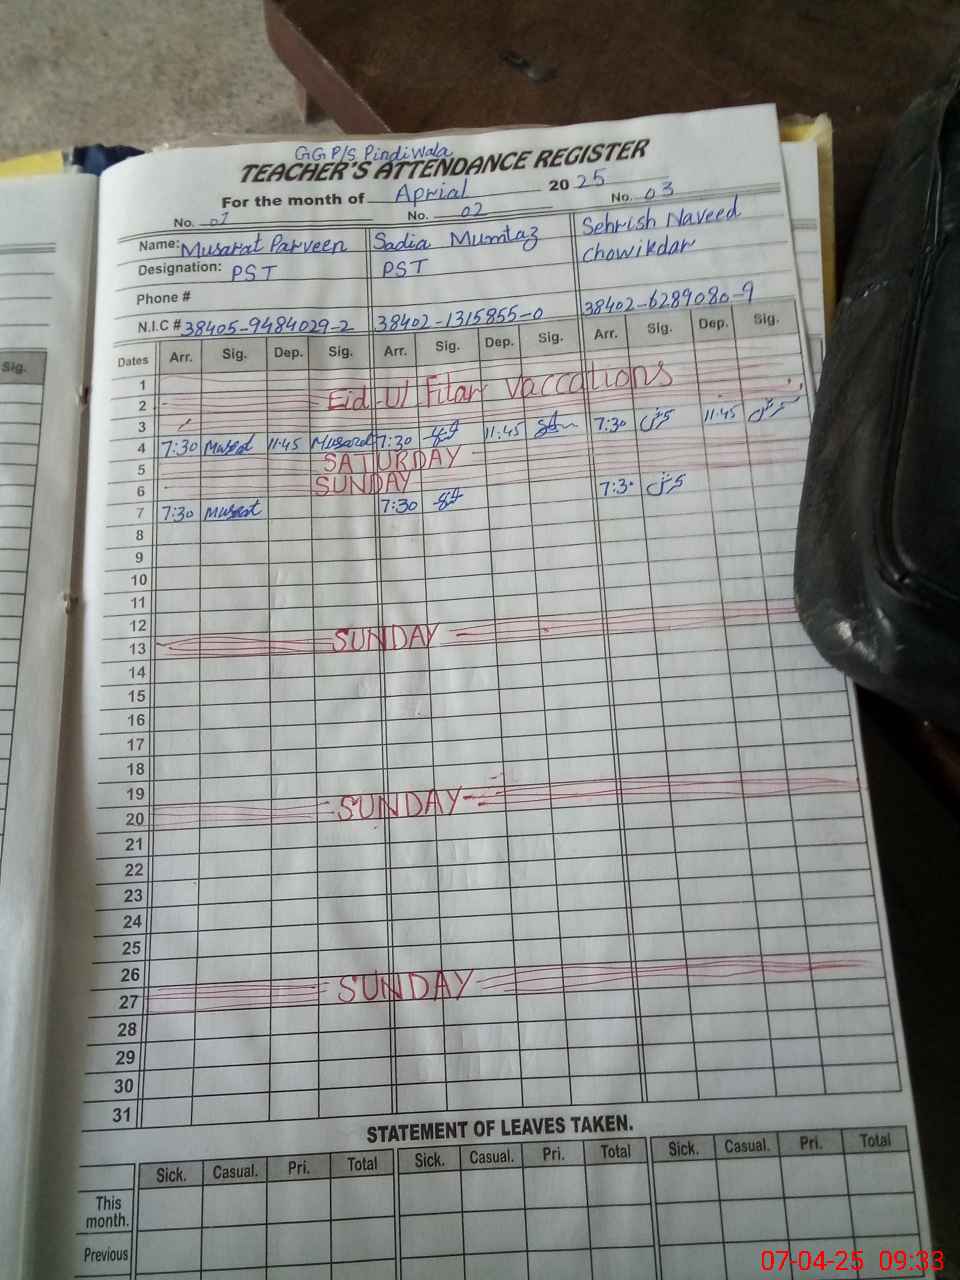 GG P/S Pindiwala
TEACHER'S ATTENDANCE REGISTER
For the month of Aprial 2025
No. 01 No. 02 No. 03
Name: Musarat Parveen Sadia Mumtaz Sehrish Naveed
Designation: PST PST Chowikdar
Phone #
N.I.C # 38405-9484029-2 38402-1315855-0 38402-6289080-9
Sig.
Dates Arr. Sig. Dep. Sig. Arr. Sig. Dep. Sig. Arr. Sig. Dep. Sig.
1
2 Eid Ul Fitar Vaccations
3
4 7:30 Musarat 11:45 Musarat 7:30 11:45 7:30 11:45
5 SATURDAY
6 SUNDAY
7 7:30 Musarat 7:30 7:30
8
9
10
11
12
13 SUNDAY
14
15
16
17
18
19
20 SUNDAY
21
22
23
24
25
26
27 SUNDAY
28
29
30
31
STATEMENT OF LEAVES TAKEN.
Sick. Casual. Pri. Total Sick. Casual. Pri. Total Sick. Casual. Pri. Total
This
month.
Previous
07-04-25 09:33